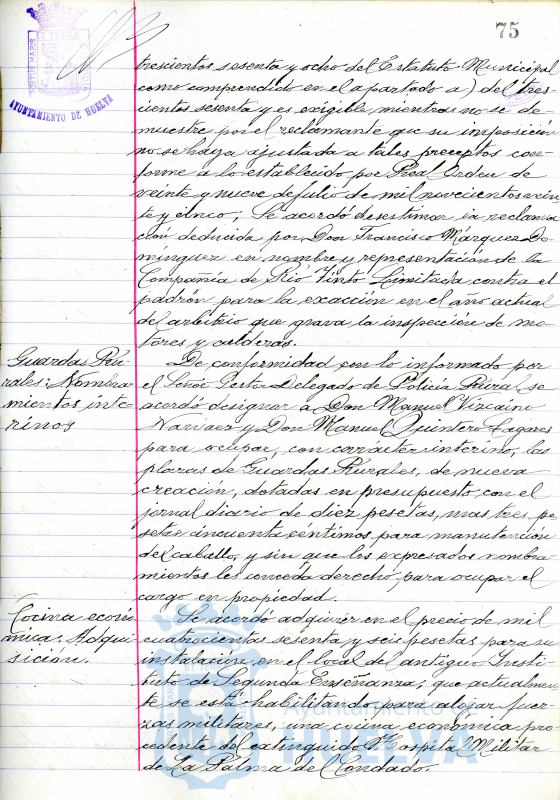 75
AYUNTAMIENTO DE HUELVA
trescientos sesenta y ocho del Estatuto Municipal
como comprendido en el apartado a) del tres-
cientos sesenta y es exigible mientras no se de-
muestre por el reclamante que su imposición
no se haya ajustada a tales preceptos con-
forme a lo establecido por Real Orden de
veinte y nueve de julio de mil novecientos vein-
te y cinco; Se acordó desestimar la reclama-
ción deducida por Don Francisco Márquez Do-
minguez en nombre y representación de la
Compañía de Rio Tinto Limitada contra el
padrón para la exacción en el año actual
del arbitrio que grava la inspección de mo-
tores y calderas.
Guardas Ru-
rales: Nombra-
mientos inte-
rinos
De conformidad con lo informado por
el Señor Gestor Delegado de Policía Rural se
acordó designar a Don Manuel Vizcaino
Narvaez y Don Manuel Quintero Lagares
para ocupar, con carácter interino, las
plazas de Guardas Rurales, de nueva
creación, dotadas en presupuesto con el
jornal diario de diez pesetas, mas tres pe-
setas cincuenta céntimos para manutención
del caballo, y sin que los expresados nombra-
mientos les conceda derecho para ocupar el
cargo en propiedad.
Cocina econó-
mica: Adqui-
sición.
Se acordó adquirir en el precio de mil
cuatrocientas sesenta y seis pesetas para su
instalación en el local del antiguo Insti-
tuto de Segunda Enseñanza, que actualmen-
te se está habilitando para alojar fuer-
zas militares, una cocina económica pro-
cedente del extinguido Hospital Militar
de La Palma del Condado.
Ayuntamiento
HUELVA